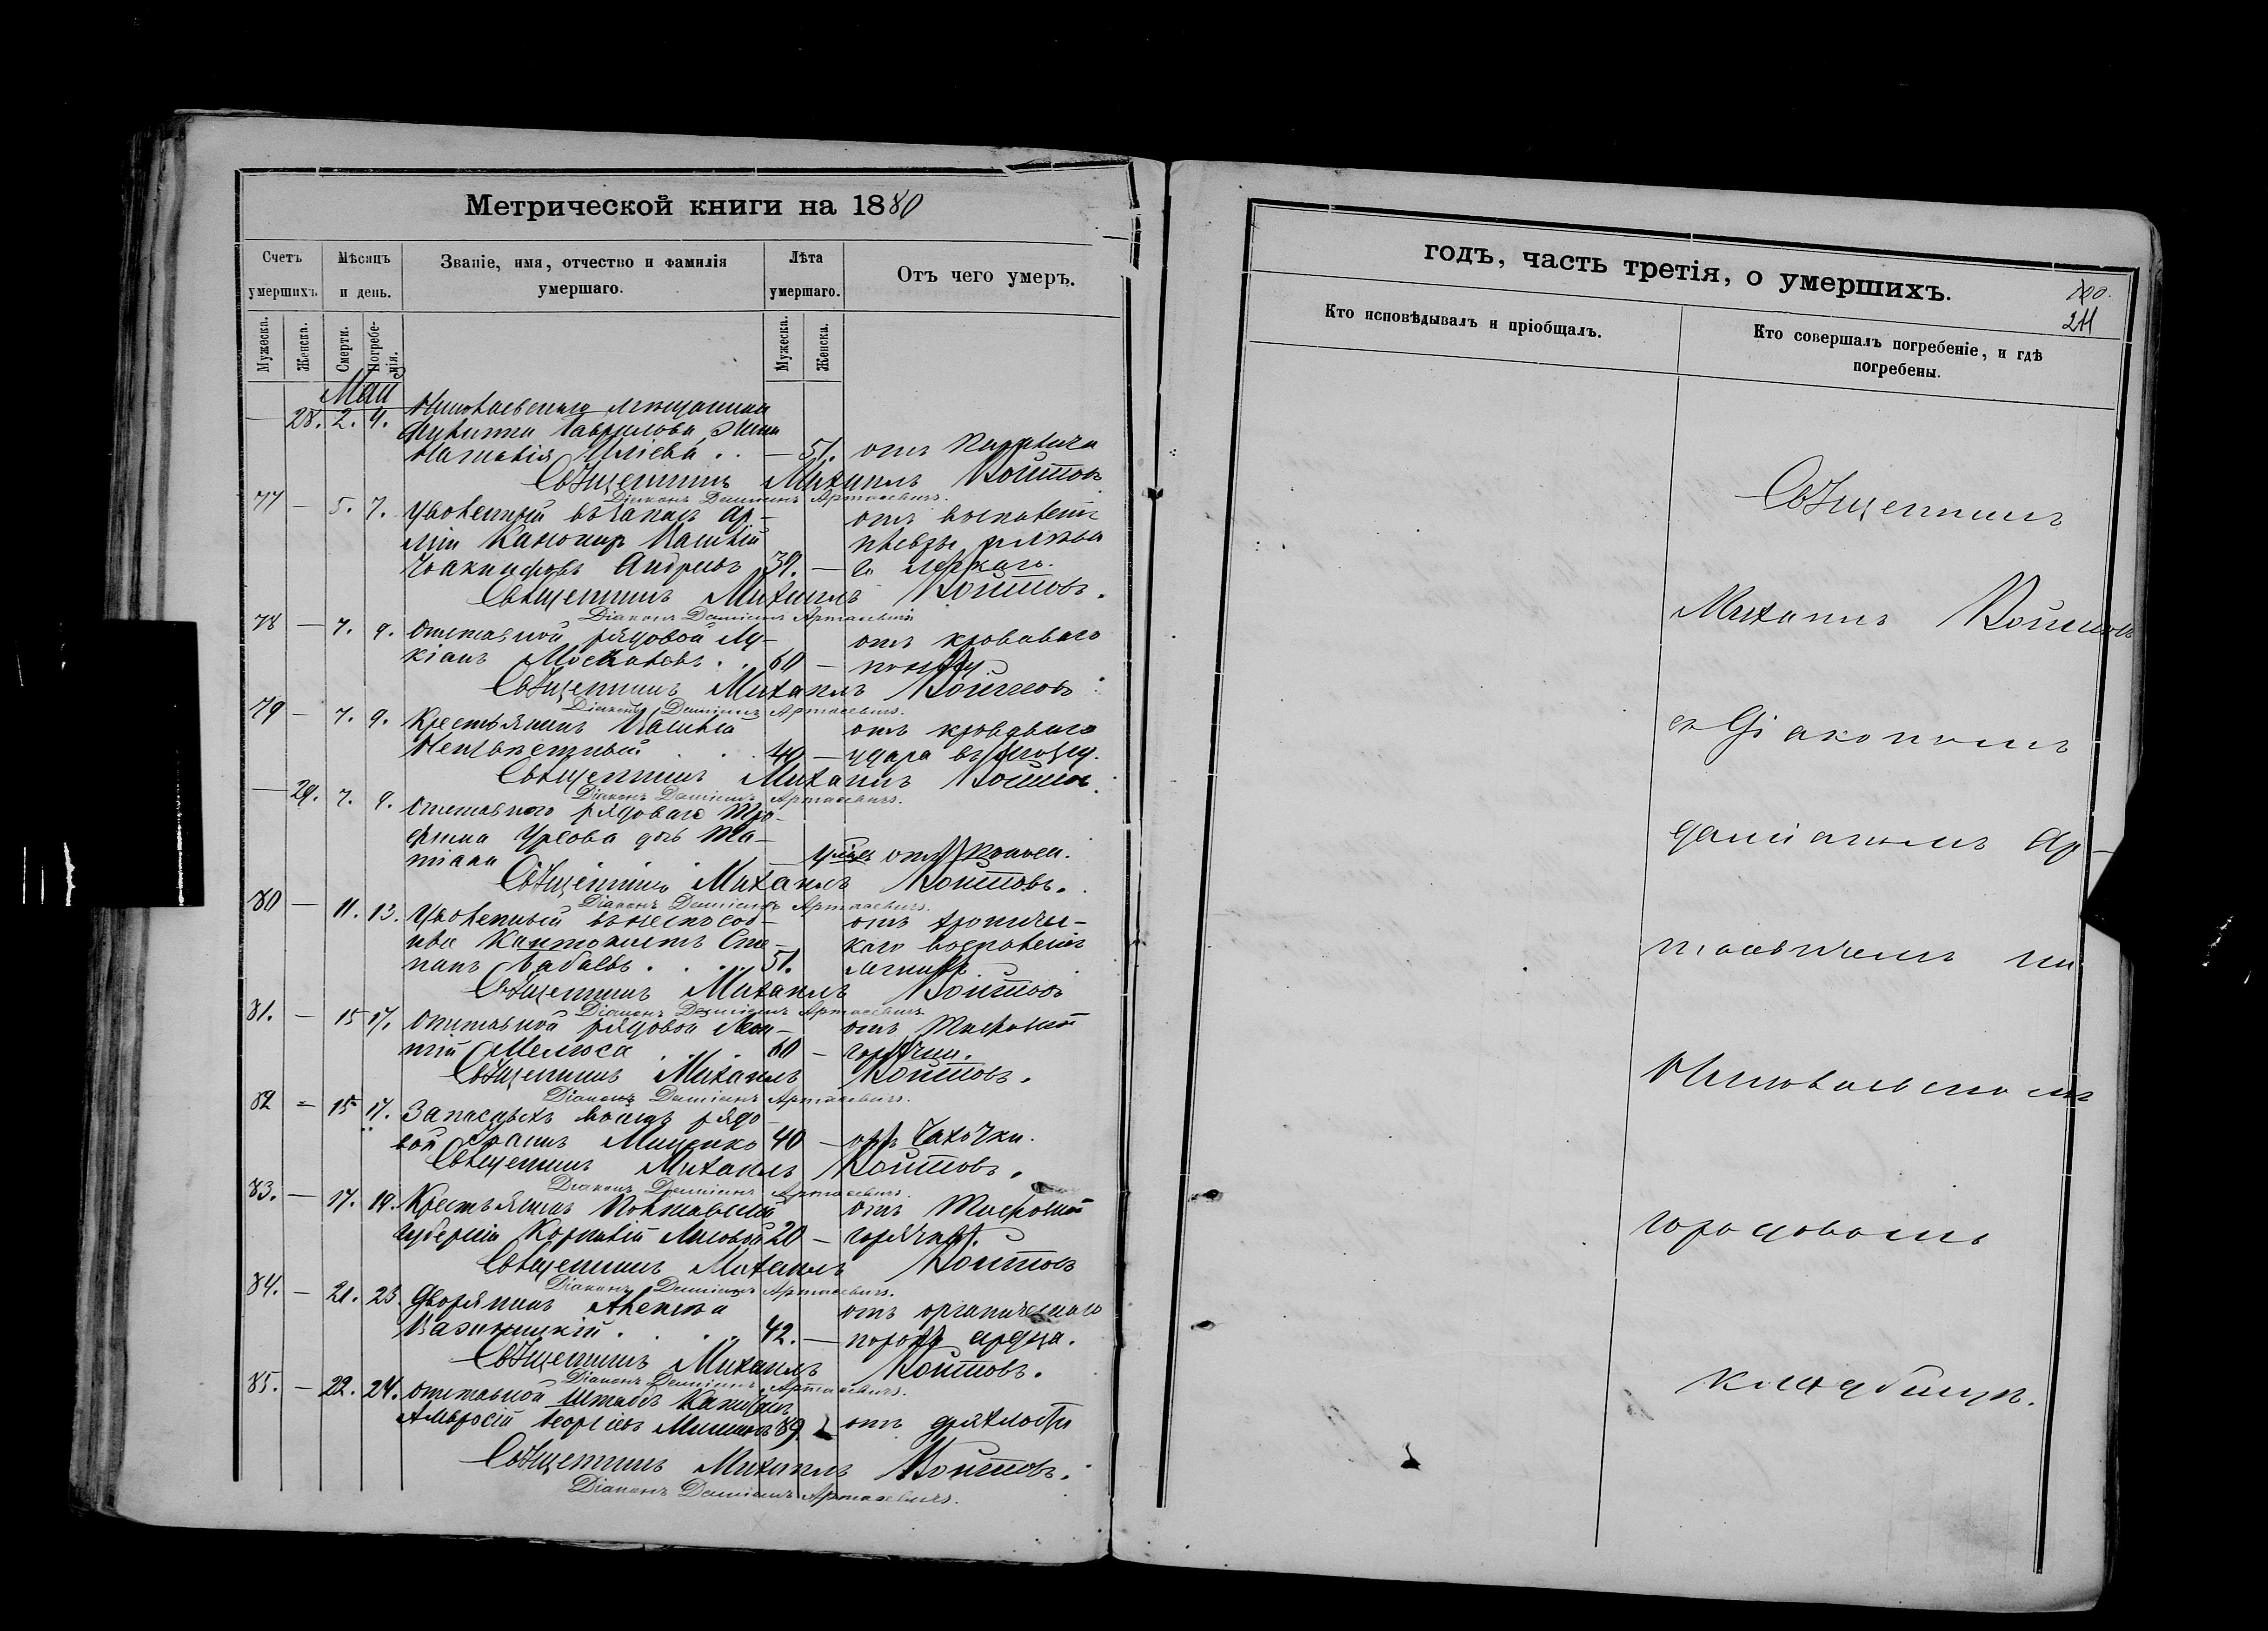 Метрической книги на 1880
Счетъ умершихъ.
Мѣсяцъ и день.
Званіе, имя, отчество и фамилія умершаго.
Лѣта умершаго.
Отъ чего умеръ.
Мужеска.
Женска.
Смерти.
Погребенія.
Мужеска.
Женска.
Май
— 28. 2. 4. Николаевскаго мѣщанина
Гаврилова жена
51. отъ
Священникъ Михаилъ Войтовъ
Діаконъ Даміанъ Артасевичъ.
77 — 5. 7. Уволенный въ запасъ ар-
міи Василій
отъ воспаленія
Андреевъ 39. — легкаго.
Священникъ Михаилъ Войтовъ.
Діаконъ Даміанъ Артасевичъ
78 — 7. 9. отставной рядовой Лу-
отъ кроваваго
кіанъ 60 — поносу
Священникъ Михаилъ Войтовъ
Діаконъ Даміанъ Артасевичъ.
79 — 7. 9. Крестьянинъ
отъ кроваваго
Неизвѣстный 49 — удара въ мозгу.
Священникъ Михаилъ Войтовъ.
Діаконъ Даміанъ Артасевичъ.
— 29. 7. 9. отставного рядоваго Тро-
фима дочь Та-
тіана отъ поноса.
Священникъ Михаилъ Войтовъ.
Діаконъ Даміанъ Артасевичъ.
80 — 11. 13. Уволенный
отъ хрониче-
Кантонистъ Сте-
каго воспаленія
панъ Бабаевъ 51. легкихъ
Священникъ Михаилъ Войтовъ
Діаконъ Даміанъ Артасевичъ
81. — 15 17. отставной рядовой
отъ тифозной
60 — горячки.
Священникъ Михаилъ Войтовъ.
Діаконъ Даміанъ Артасевичъ.
82 — 15 17. рядо-
вой 40 — отъ чахотки.
Священникъ Михаилъ Войтовъ.
Діаконъ Даміанъ Артасевичъ.
83. — 17. 19. Крестьянинъ Полтавской
отъ тифозной
губерніи Корнилій 20 — горячки.
Священникъ Михаилъ Войтовъ
Діаконъ Даміанъ Артасевичъ.
84. — 21. 23. Дворянинъ
отъ органическаго
42. — порока сердца.
Священникъ Михаилъ Войтовъ.
Діаконъ Даміанъ Артасевичъ.
85. — 22. 24. отставной Штабсъ Капитанъ
Амвросій Георгіевъ 89 отъ дряхлости
Священникъ Михаилъ Войтовъ.
Діаконъ Даміанъ Артасевичъ.
годъ, часть третія, о умершихъ.
211
Кто исповѣдывалъ и пріобщалъ.
Кто совершалъ погребеніе, и гдѣ погребены.
Священникъ
Михаилъ Войтовъ
съ Діакономъ
Даміаномъ Ар-
тасевичемъ на
Николаевскомъ
городовомъ
кладбищѣ.